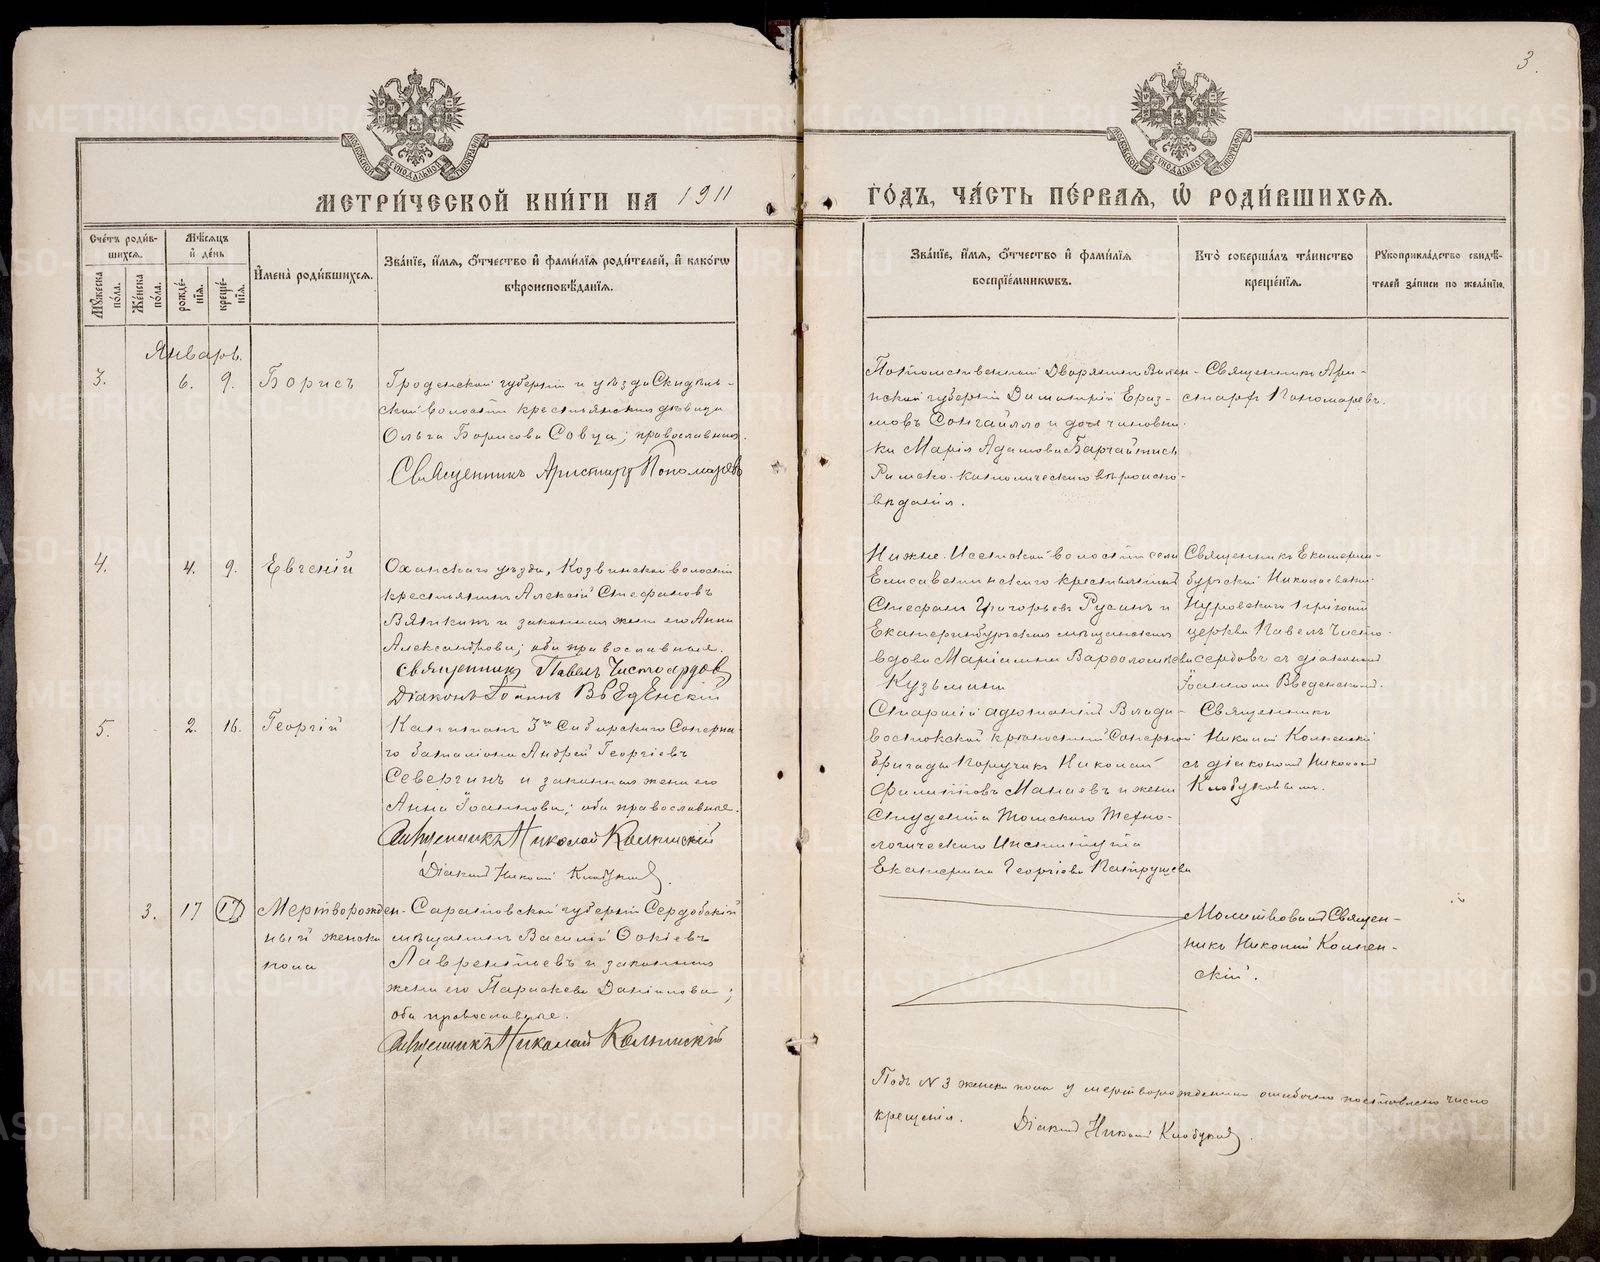 3.
МОСКОВСКОЙ СѴНОДАЛЬНОЙ ТИПОГРАФІИ
МОСКОВСКОЙ СѴНОДАЛЬНОЙ ТИПОГРАФІИ
МЕТРИ́ЧЕСКОЙ КНИ́ГИ НА 1911
ГО́ДЪ, ЧА́СТЬ ПЕ́РВАЯ, Ѽ РОДИ́ВШИХСЯ.
Сче́тъ роди́в-
шихся.
Мѣ́сяцъ
и҆ де́нь
Мꙋ́жеска по́ла.
Же́нска по́ла.
рожде́-
нїя.
креще́-
нїя.
И҆мена̀ роди́вшихся.
Зва́нїе, и҆́мя, ѻ҆́тчество и҆ фами́лїя роди́телей, и҆ како́гѡ
вѣроисповѣ́данїя.
Зва́нїе, и҆́мя, ѻ҆́тчество и҆ фами́лїя
воспрїе́мникѡвъ.
Кто̀ соверша́лъ та́инство
креще́нїя.
Рꙋкоприкла́дство свидѣ́-
телей за́писи по жела́нїю.
Январь.
3. 6. 9. Борисъ
Гроденской губерніи и уѣзда Скидель-
ской волости крестьянская дѣвица
Ольга Борисова Совца; православная.
Священникъ Аристархъ Пономаревъ
Потомственный Дворянинъ Вилен-
ской губерніи Димитрій Ераз-
мовъ Сонгайлло и дочь чиновни-
ка Марія Адамова Барчайтисъ
Римско-католическаго вѣроиспо-
вѣданія.
Священникъ Ари-
стархъ Пономаревъ.
4. 4. 9. Евгеній
Оханскаго уѣзда, Козвинской волости
крестьянинъ Алексій Стефановъ
Вяткинъ и законная жена его Анна
Александрова; оба православные.
Священникъ Павелъ Чистосердовъ
Діаконъ Іоаннъ Введенскій
Нижне-Исетской волости села
Елисаветинскаго крестьянинъ
Стефанъ Григорьевъ Русинъ и
Екатеринбургская мѣщанская
вдова Маріамна Варѳоломеева
Кузьмина
Священникъ Екатерин-
бургской Николаевской
Нуровскаго пріюта
церкви Павелъ Чисто-
сердовъ съ діакономъ
Іоанномъ Введенскимъ.
5. 2. 16. Георгій
Капитанъ 3го Сибирскаго Сапернa-
го баталіона Андрей Георгіевъ
Севергинъ и законная жена его
Анна Іоаннова; оба православные.
Священникъ Николай Колпинскій
Діаконъ Николай Клобуковъ.
Старшій адъютантъ Влади-
востокской крѣпостной Саперной
бригады Поручикъ Николай
Филипповъ Манаевъ и жена
Студента Томскаго Техно-
логическаго Института
Екатерина Георгіева Патрушева
Священникъ
Николай Колпинскій
съ діакономъ Николаемъ
Клобуковымъ.
3. 17 17 Мертворожден-
ный женска
пола
Саратовской губерніи Сердобскій
мѣщанинъ Василій Фокіевъ
Лаврентьевъ и законная
жена его Параскева Даніилова;
оба православные.
Священникъ Николай Колпинскій
Молитвовалъ Священ-
никъ Николай Колпин-
скій.
Подъ № 3 женска пола у мертворожденной ошибочно поставлено число
крещенія. Діаконъ Николай Клобуковъ.
METRIKI.GASO-URAL.RU